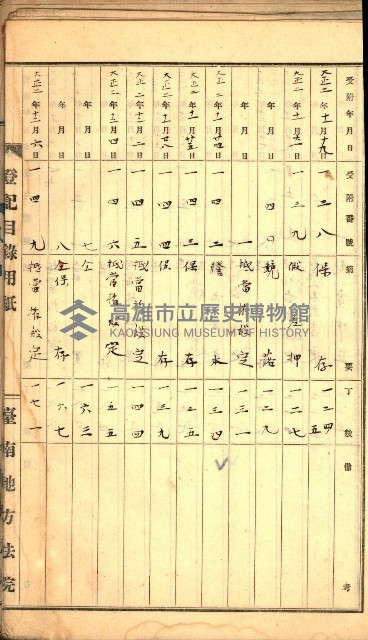 受附年月日 受附番號 摘要 丁數 備考
大正二年十一月十九日 一三八 保存 一二四 五
大正二年十一月 日 一三九 假差押 一二七
年月日 一四〇 競落 一二九
年月日 一 抵當權設定 一三一
大正二年十一月廿四日 一四二 一三四
大正二年十一月廿五日 一四三 保存 一三五
大正二年十一月廿八日 一四四 保存 一三九
大正二年十二月二日 一四五 抵當權設定 一四四
大正二年十二月四日 一四六 抵當權設定 一五五
年月日 七 仝 一六三
年月日 八 仝保存 一六七
大正二年十二月六日 一四九 抵當權設定 一七一
登記目錄用紙
臺南地方法院
高雄市立歷史博物館
KAOHSIUNG MUSEUM OF HISTORY